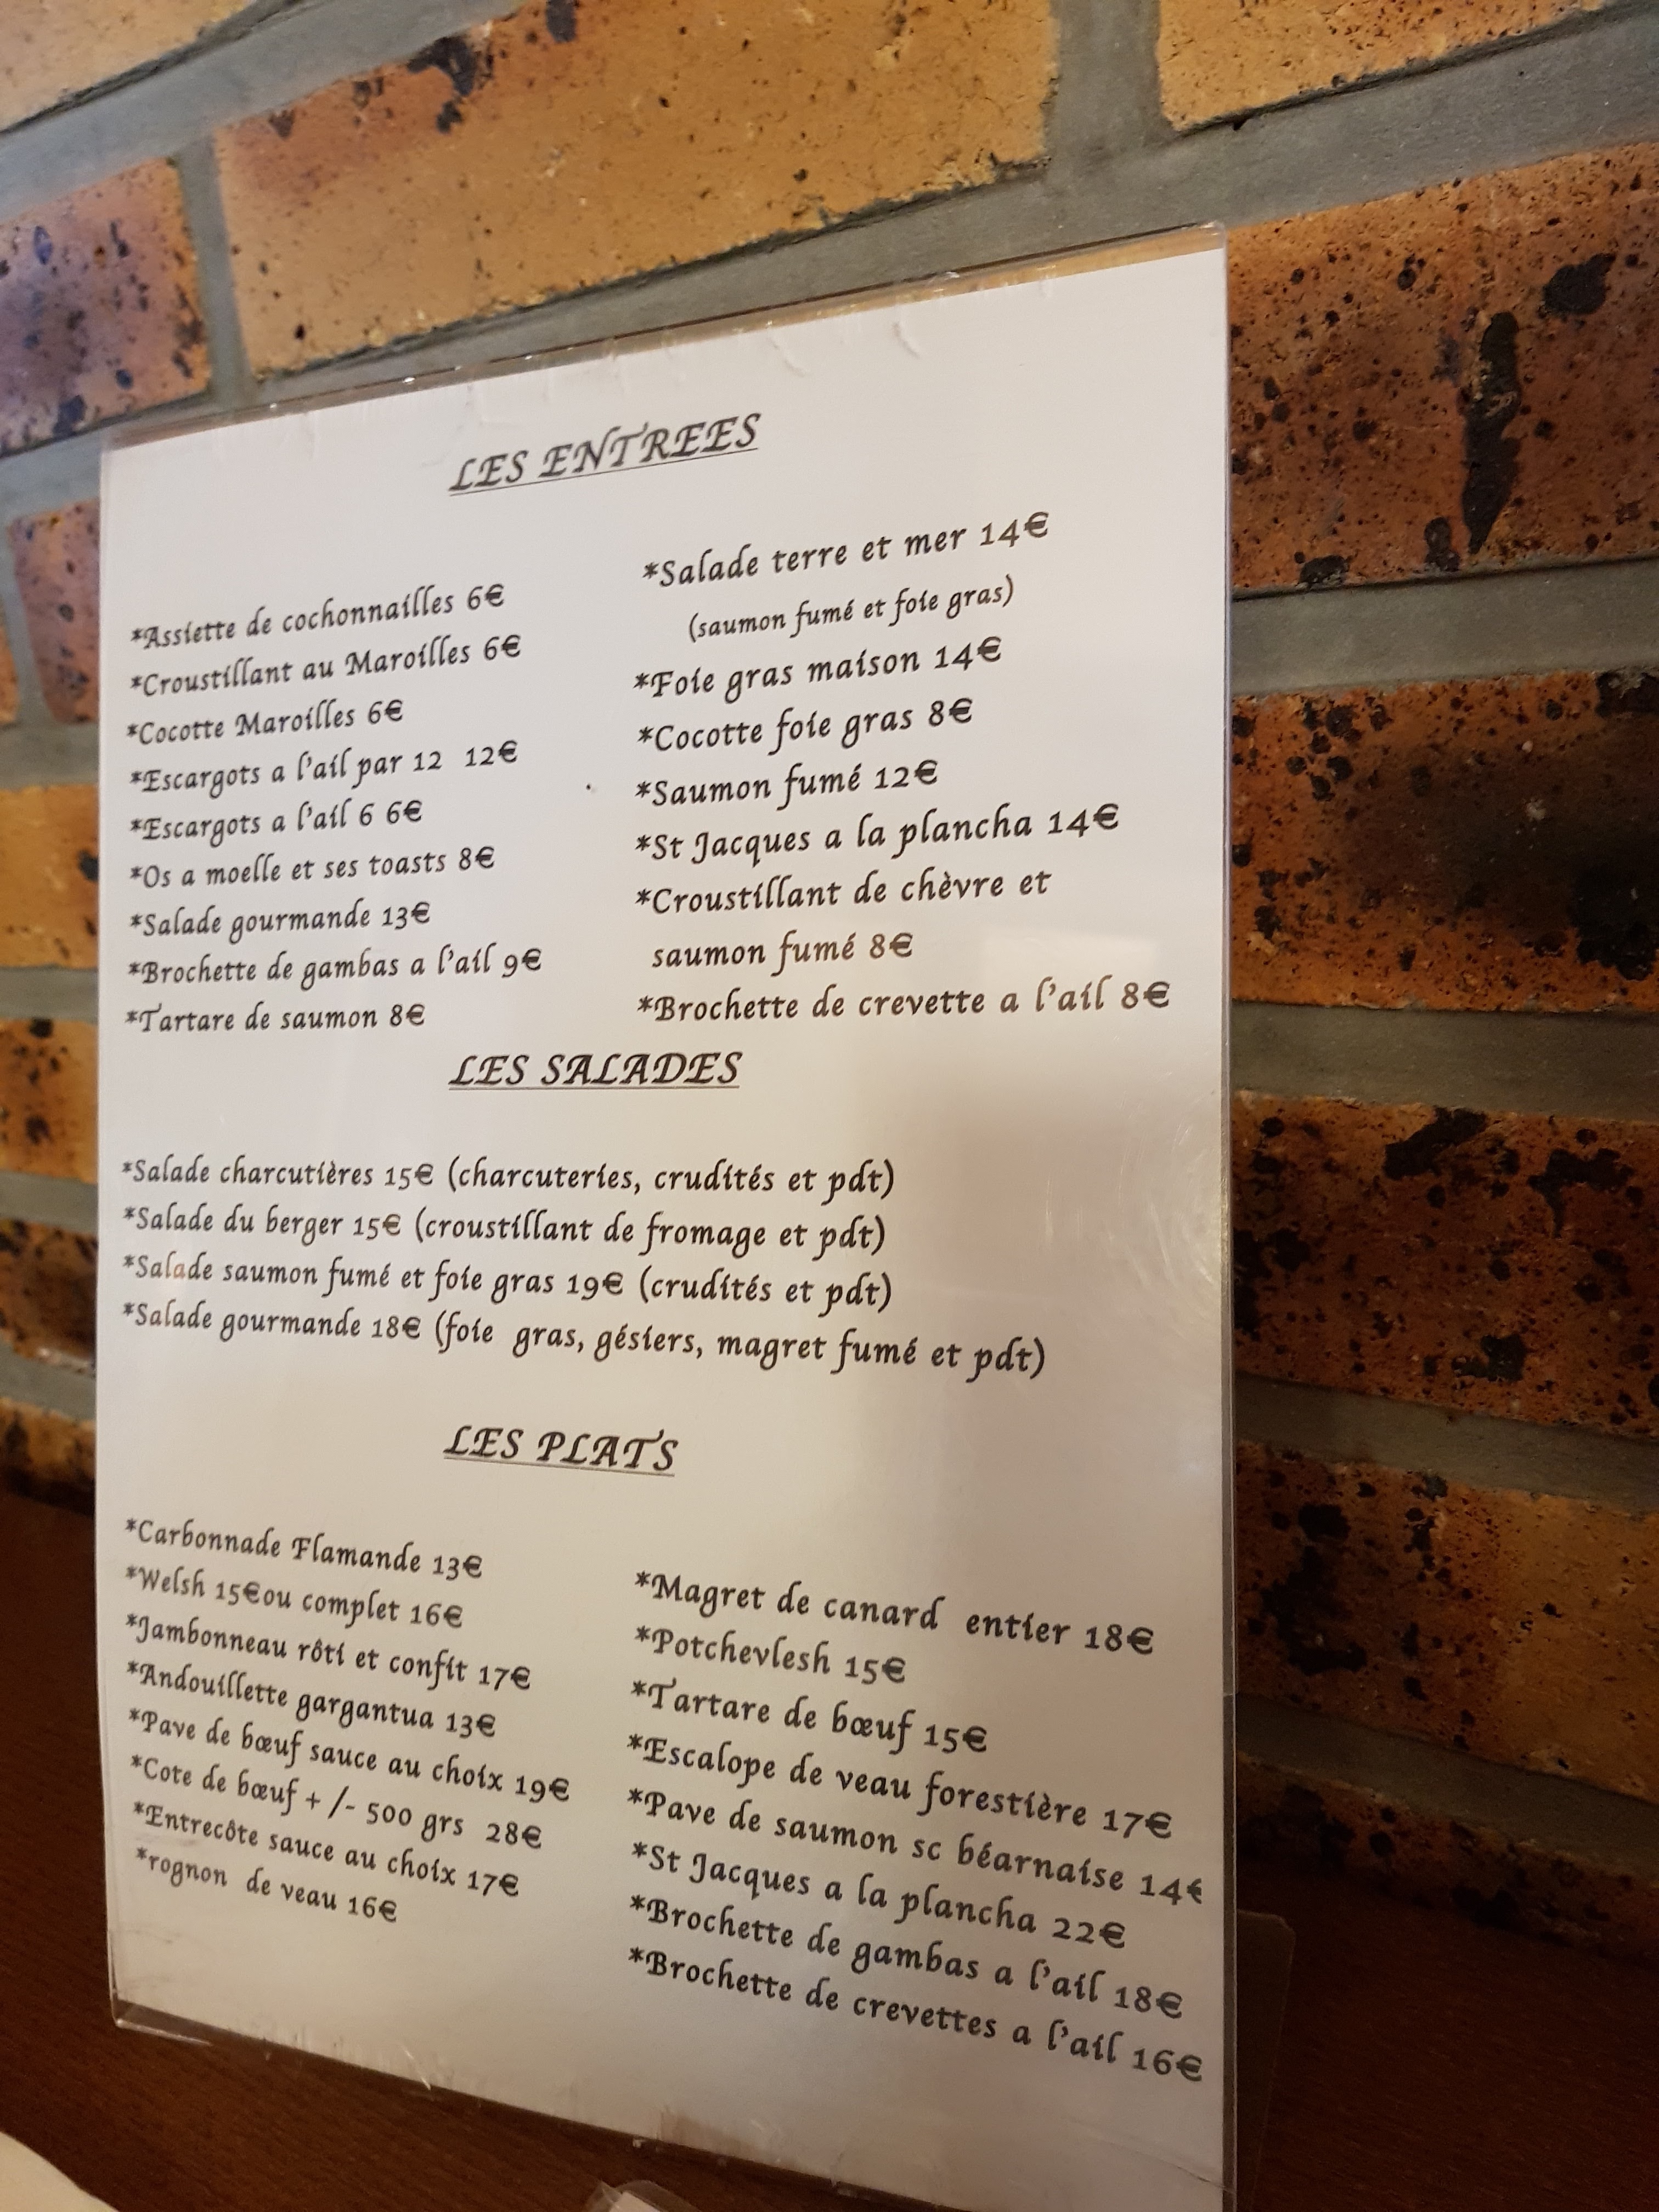 LES ENTREES
*Assiette de cochonnailles 6€
*Croustillant au Maroilles 6€
*Cocotte Maroilles 6€
*Escargots a l'ail par 12 12€
*Escargots a l'ail 6 6€
*Os a moelle et ses toasts 8€
*Salade gourmande 13€
*Brochette de gambas a l'ail 9€
*Tartare de saumon 8€
*Salade terre et mer 14€
(saumon fumé et foie gras)
*Foie gras maison 14€
*Cocotte foie gras 8€
*Saumon fumé 12€
*St Jacques a la plancha 14€
*Croustillant de chèvre et
saumon fumé 8€
*Brochette de crevette a l'ail 8€
LES SALADES
*Salade charcutières 15€ (charcuteries, crudités et pdt)
*Salade du berger 15€ (croustillant de fromage et pdt)
*Salade saumon fumé et foie gras 19€ (crudités et pdt)
*Salade gourmande 18€ (foie gras, gésiers, magret fumé et pdt)
LES PLATS
*Carbonnade Flamande 13€
*Welsh 15€ou complet 16€
*Jambonneau rôti et confit 17€
*Andouillette gargantua 13€
*Pave de bœuf sauce au choix 19€
*Cote de bœuf + /- 500 grs 28€
*Entrecôte sauce au choix 17€
*rognon de veau 16€
*Magret de canard entier 18€
*Potchevlesh 15€
*Tartare de bœuf 15€
*Escalope de veau forestière 17€
*Pave de saumon sc béarnaise 14€
*St Jacques a la plancha 22€
*Brochette de gambas a l'ail 18€
*Brochette de crevettes a l'ail 16€